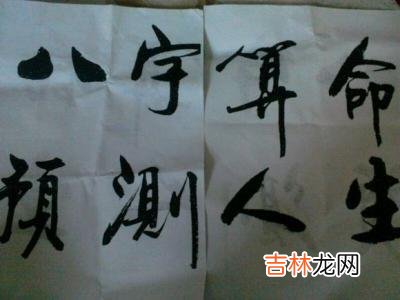 八字算命
預測人生
吉林龙网